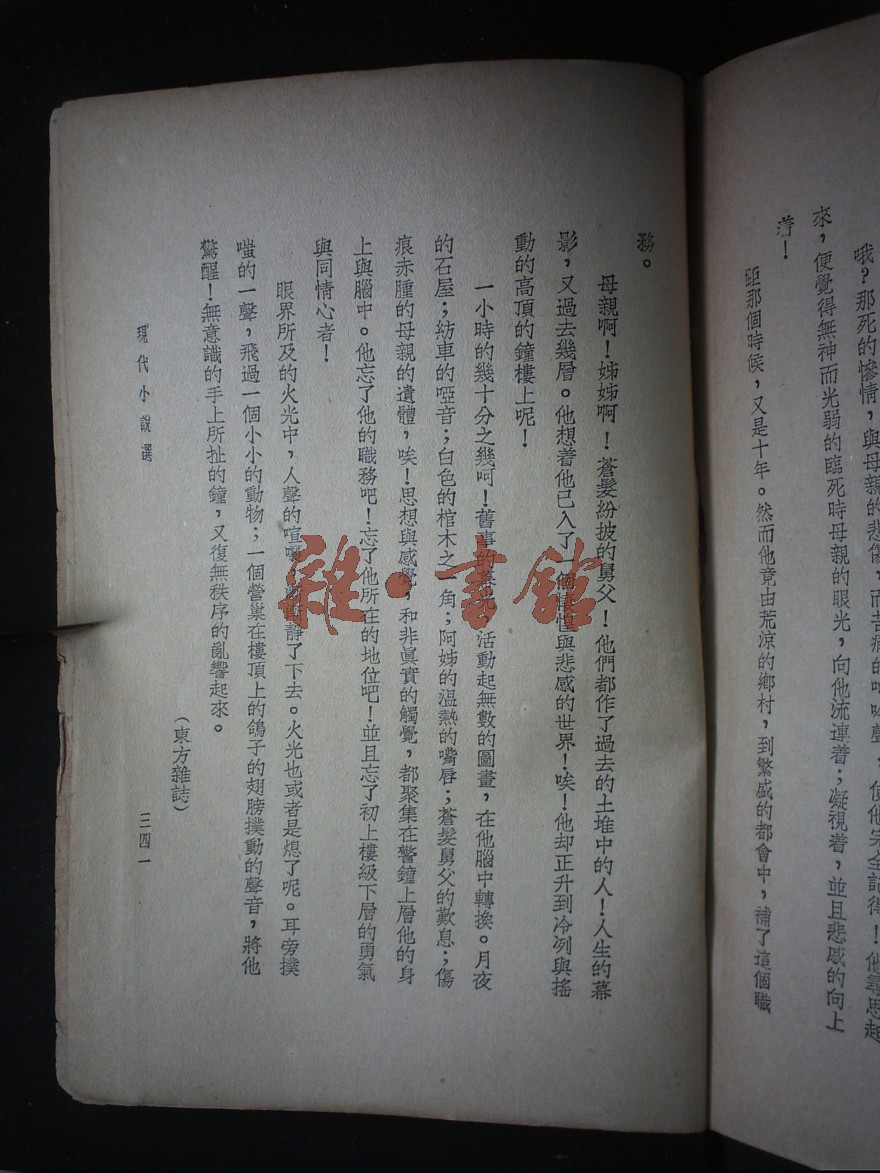 哦？那死的慘情，與母親的悲傷，而苦痛的呼吸聲，使他完全記得！他尋思起
來，便覺得無神而光弱的臨死時母親的眼光，向他流連着；凝視着，並且悲感的向上
着！
距那個時候，又是十年。然而他竟由荒涼的鄉村，到繁盛的都會中，補了這個職
務。
母親啊！姊姊啊！蒼髮紛披的舅父！他們都作了過去的土堆中的人！人生的幕
影，又過去幾層。他想着他已入了一個悽惶與悲感的世界！唉！他却正升到冷冽與搖
動的高頂的鐘樓上呢！
一小時的幾十分之幾呵！舊事的活動起無數的圖畫，在他腦中轉換。月夜
的石屋；紡車的啞音；白色的棺木之一角；阿姊的溫熱的嘴唇；蒼髮舅父的歎息；傷
痕赤腫的母親的遺體，唉！思想與感覺，和非眞實的觸覺，都聚集在警鐘上層他的身
上與腦中。他忘了他的職務吧！忘了他所在的地位吧！並且忘了初上樓級下層的勇氣
與同情心者！
眼界所及的火光中，人聲的喧靜了下去。火光也或者是熄了呢。耳旁撲
嗤的一聲，飛過一個小小的動物；一個營巢在樓頂上的鴿子的翅膀撲動的聲音，將他
驚醒！無意識的手上所扯的鐘，又復無秩序的亂響起來。
（東方雜誌）
現代小說選
三四一
雜·書館